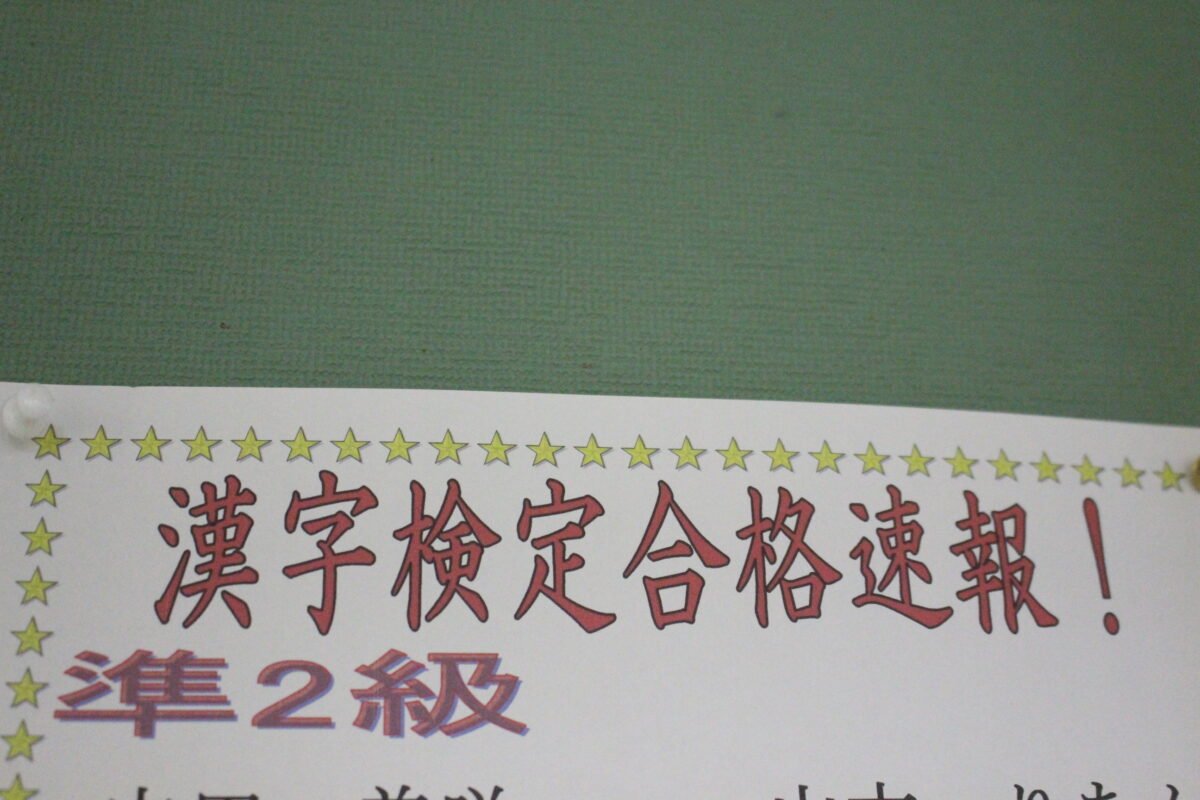 漢字検定合格速報！
準２級